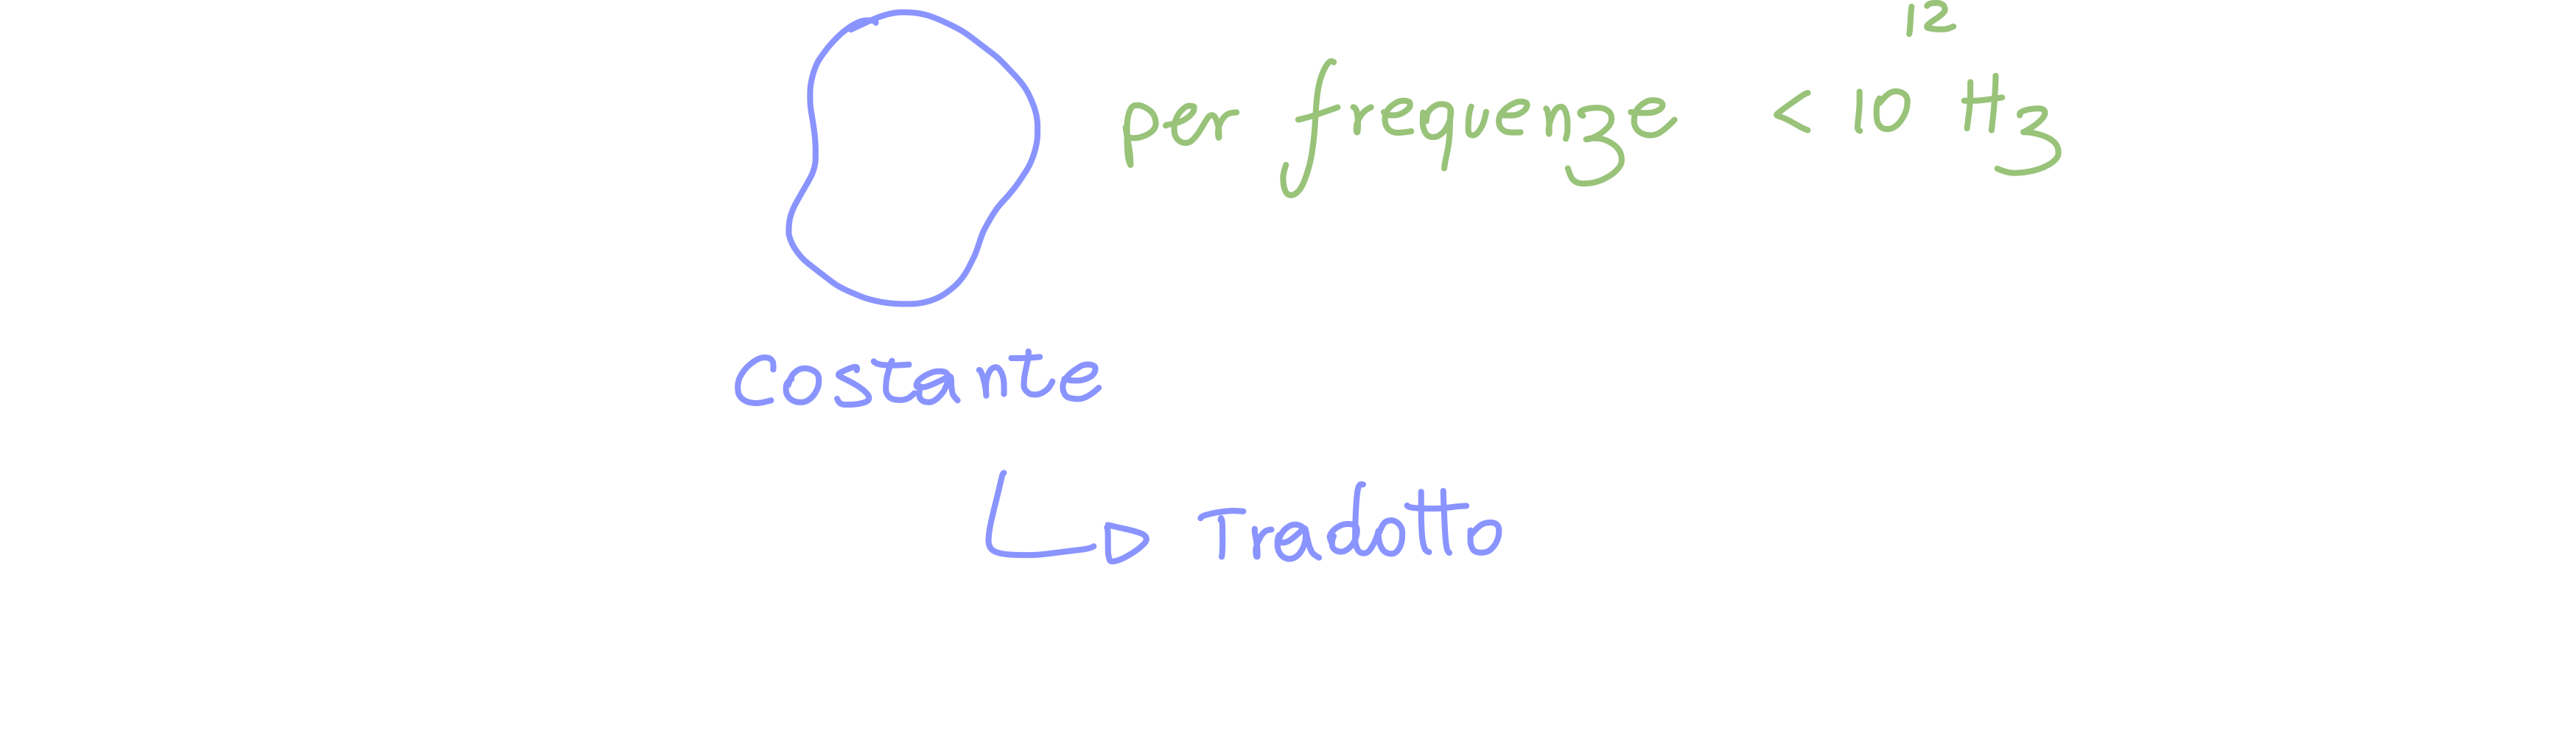 per frequenze < 10¹² Hz
Costante
Tradotto